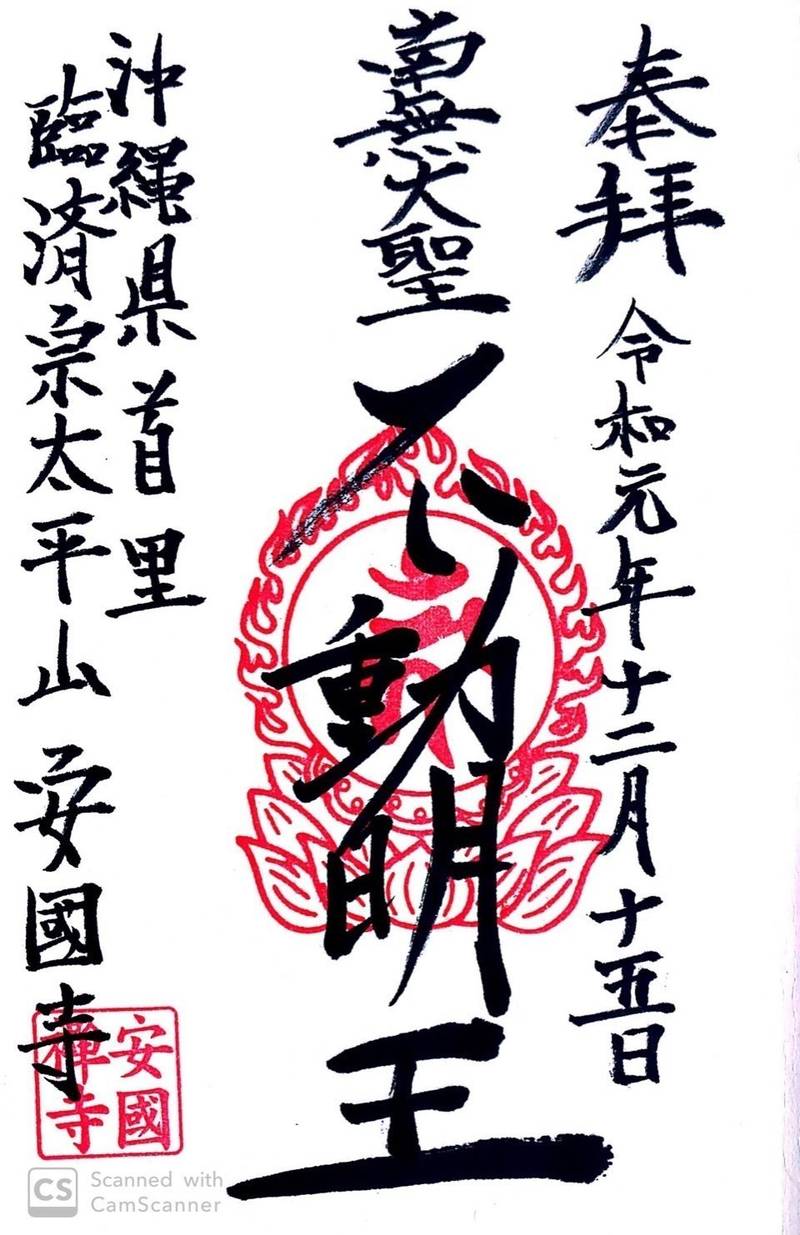 奉拝 令和元年十二月十五日
南無大聖
不動明王
沖縄県首里
臨済宗太平山 安國寺
安國
禅寺
CS Scanned with
CamScanner